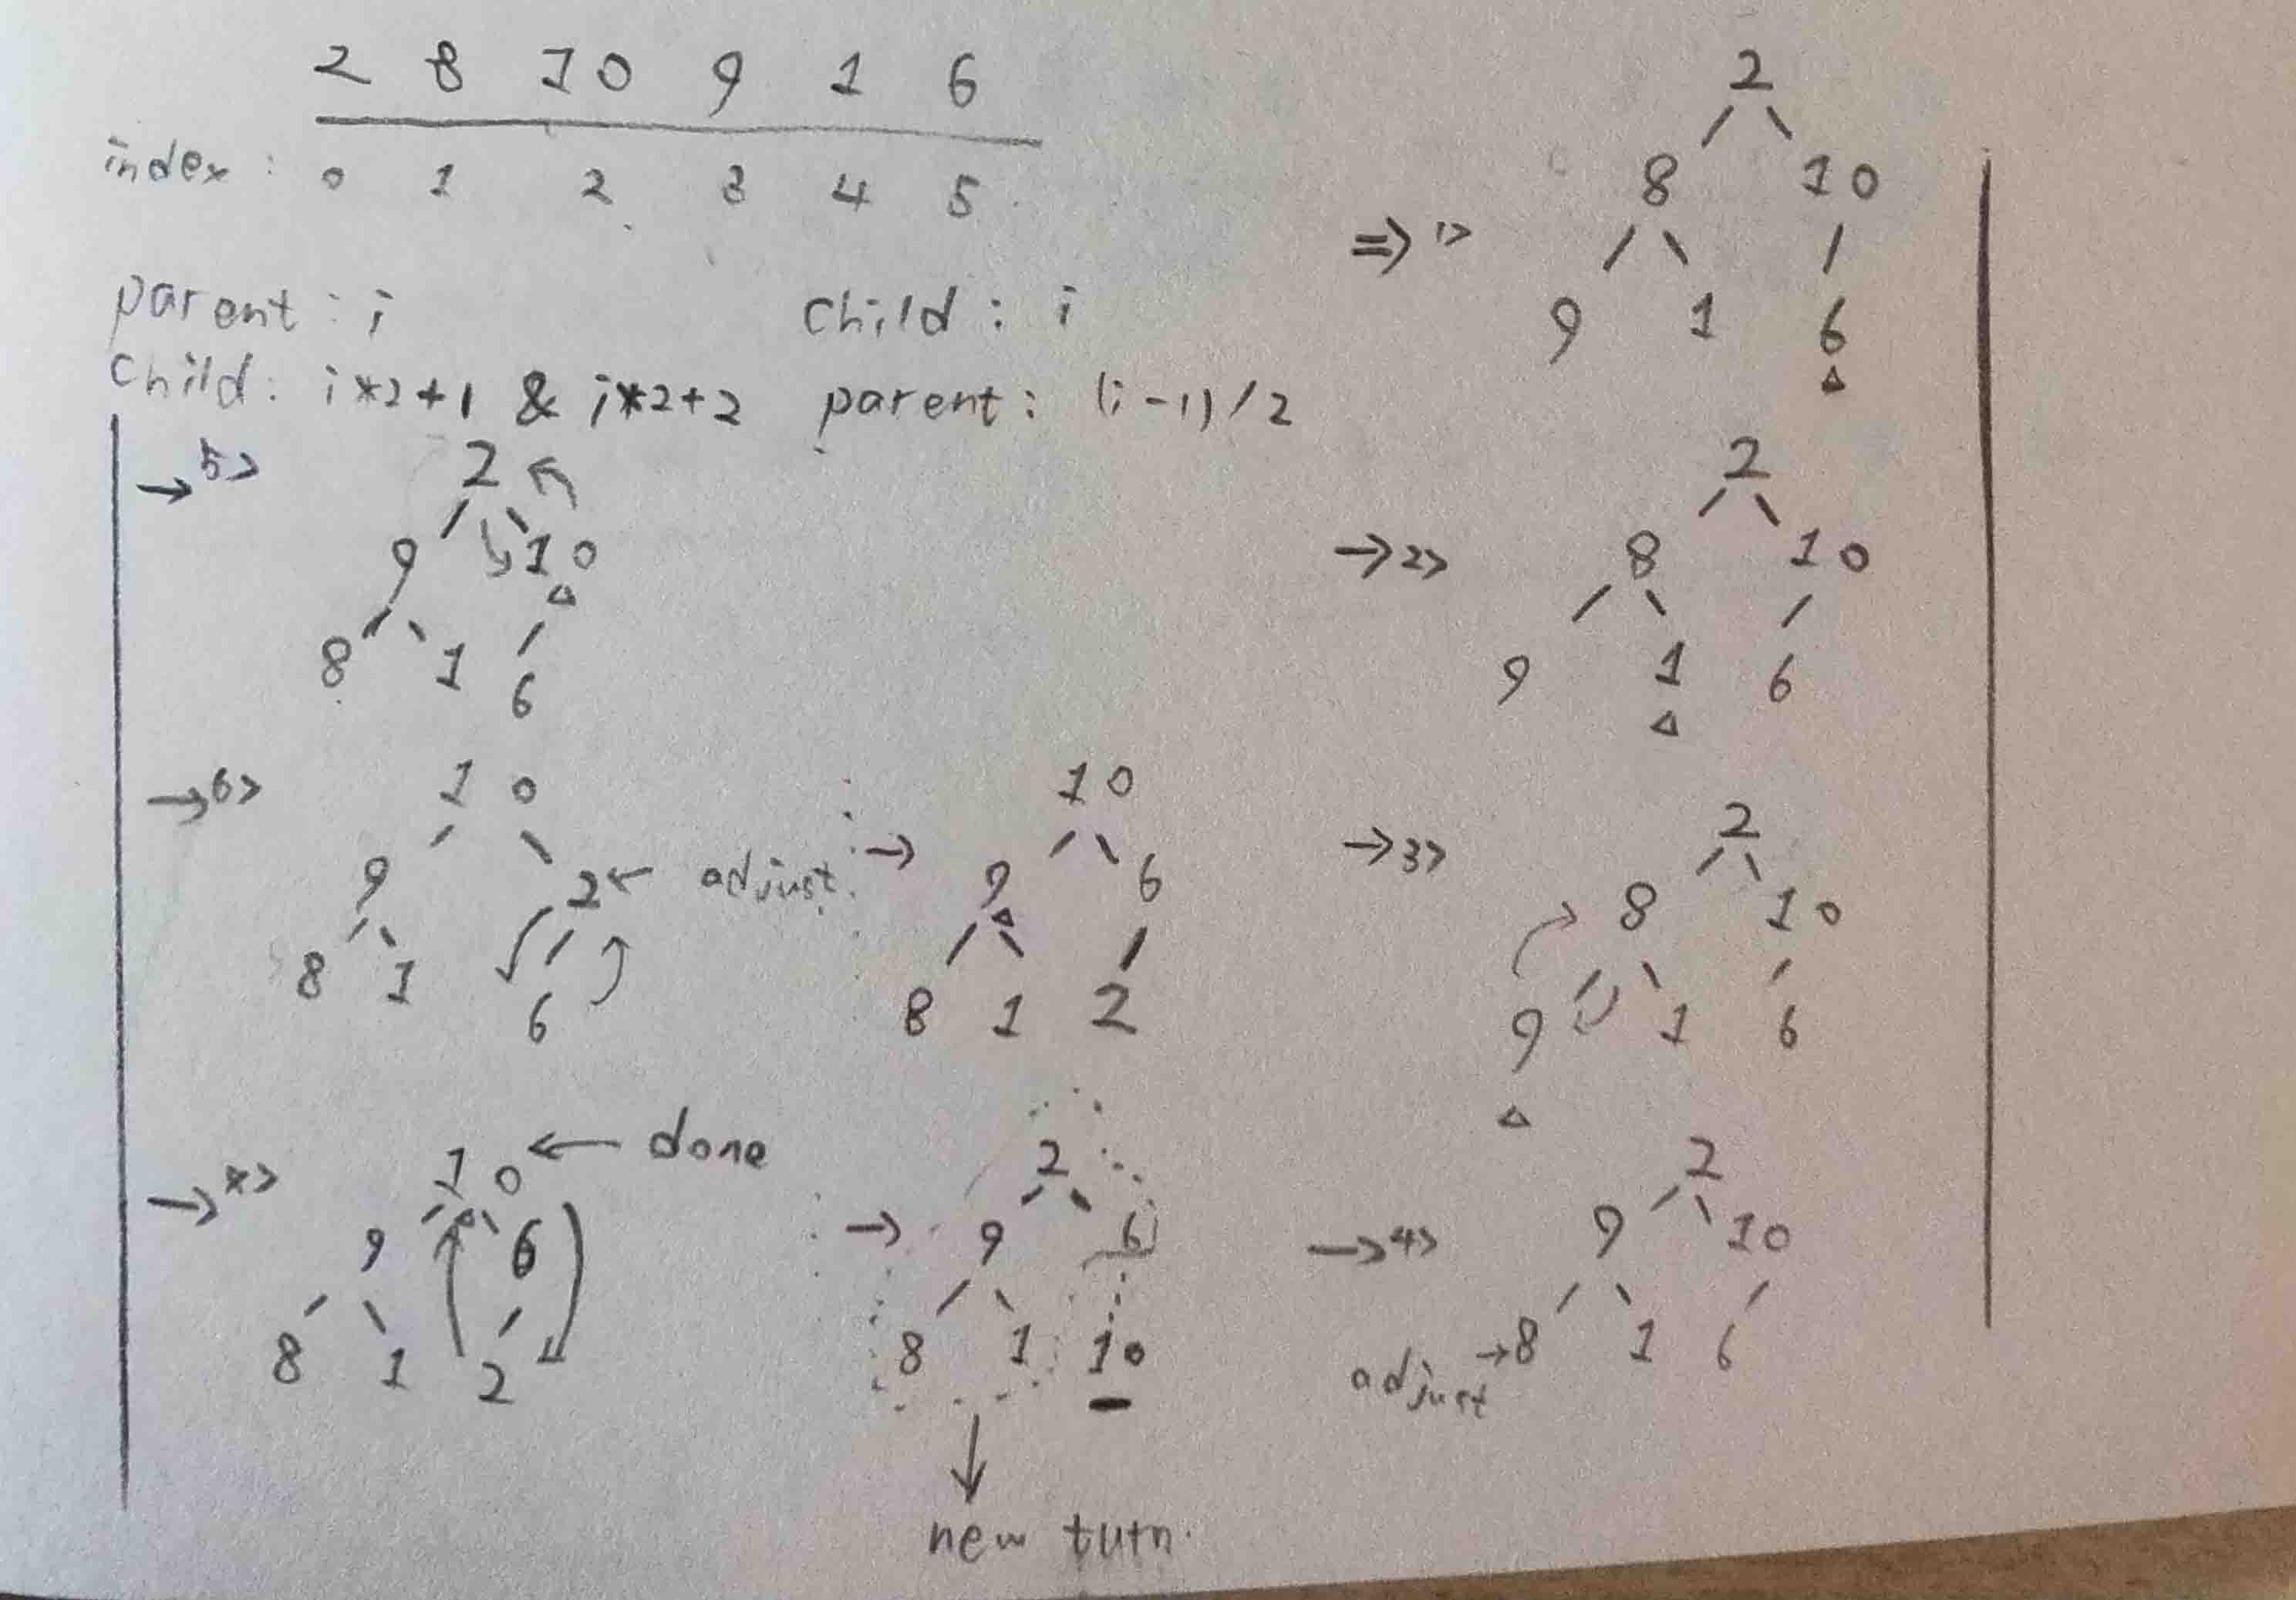 2 8 10 9 1 6
index: 0 1 2 3 4 5
parent: i child: i
child: i*2+1 & i*2+2 parent: (i-1)/2
=> 1>
2
8 10
9 1 6
→ 2>
2
8 10
9 1 6
→ 3>
2
8 10
9 1 6
→ 4>
2
9 10
adjust → 8 1 6
→ 5>
2
9 10
8 1 6
→ 6>
10
9 2 ← adjust
8 1 6
→
10
9 6
8 1 2
→ *>
10 ← done
9 6
8 1 2
→
2
9 6
8 1 10
new turn.